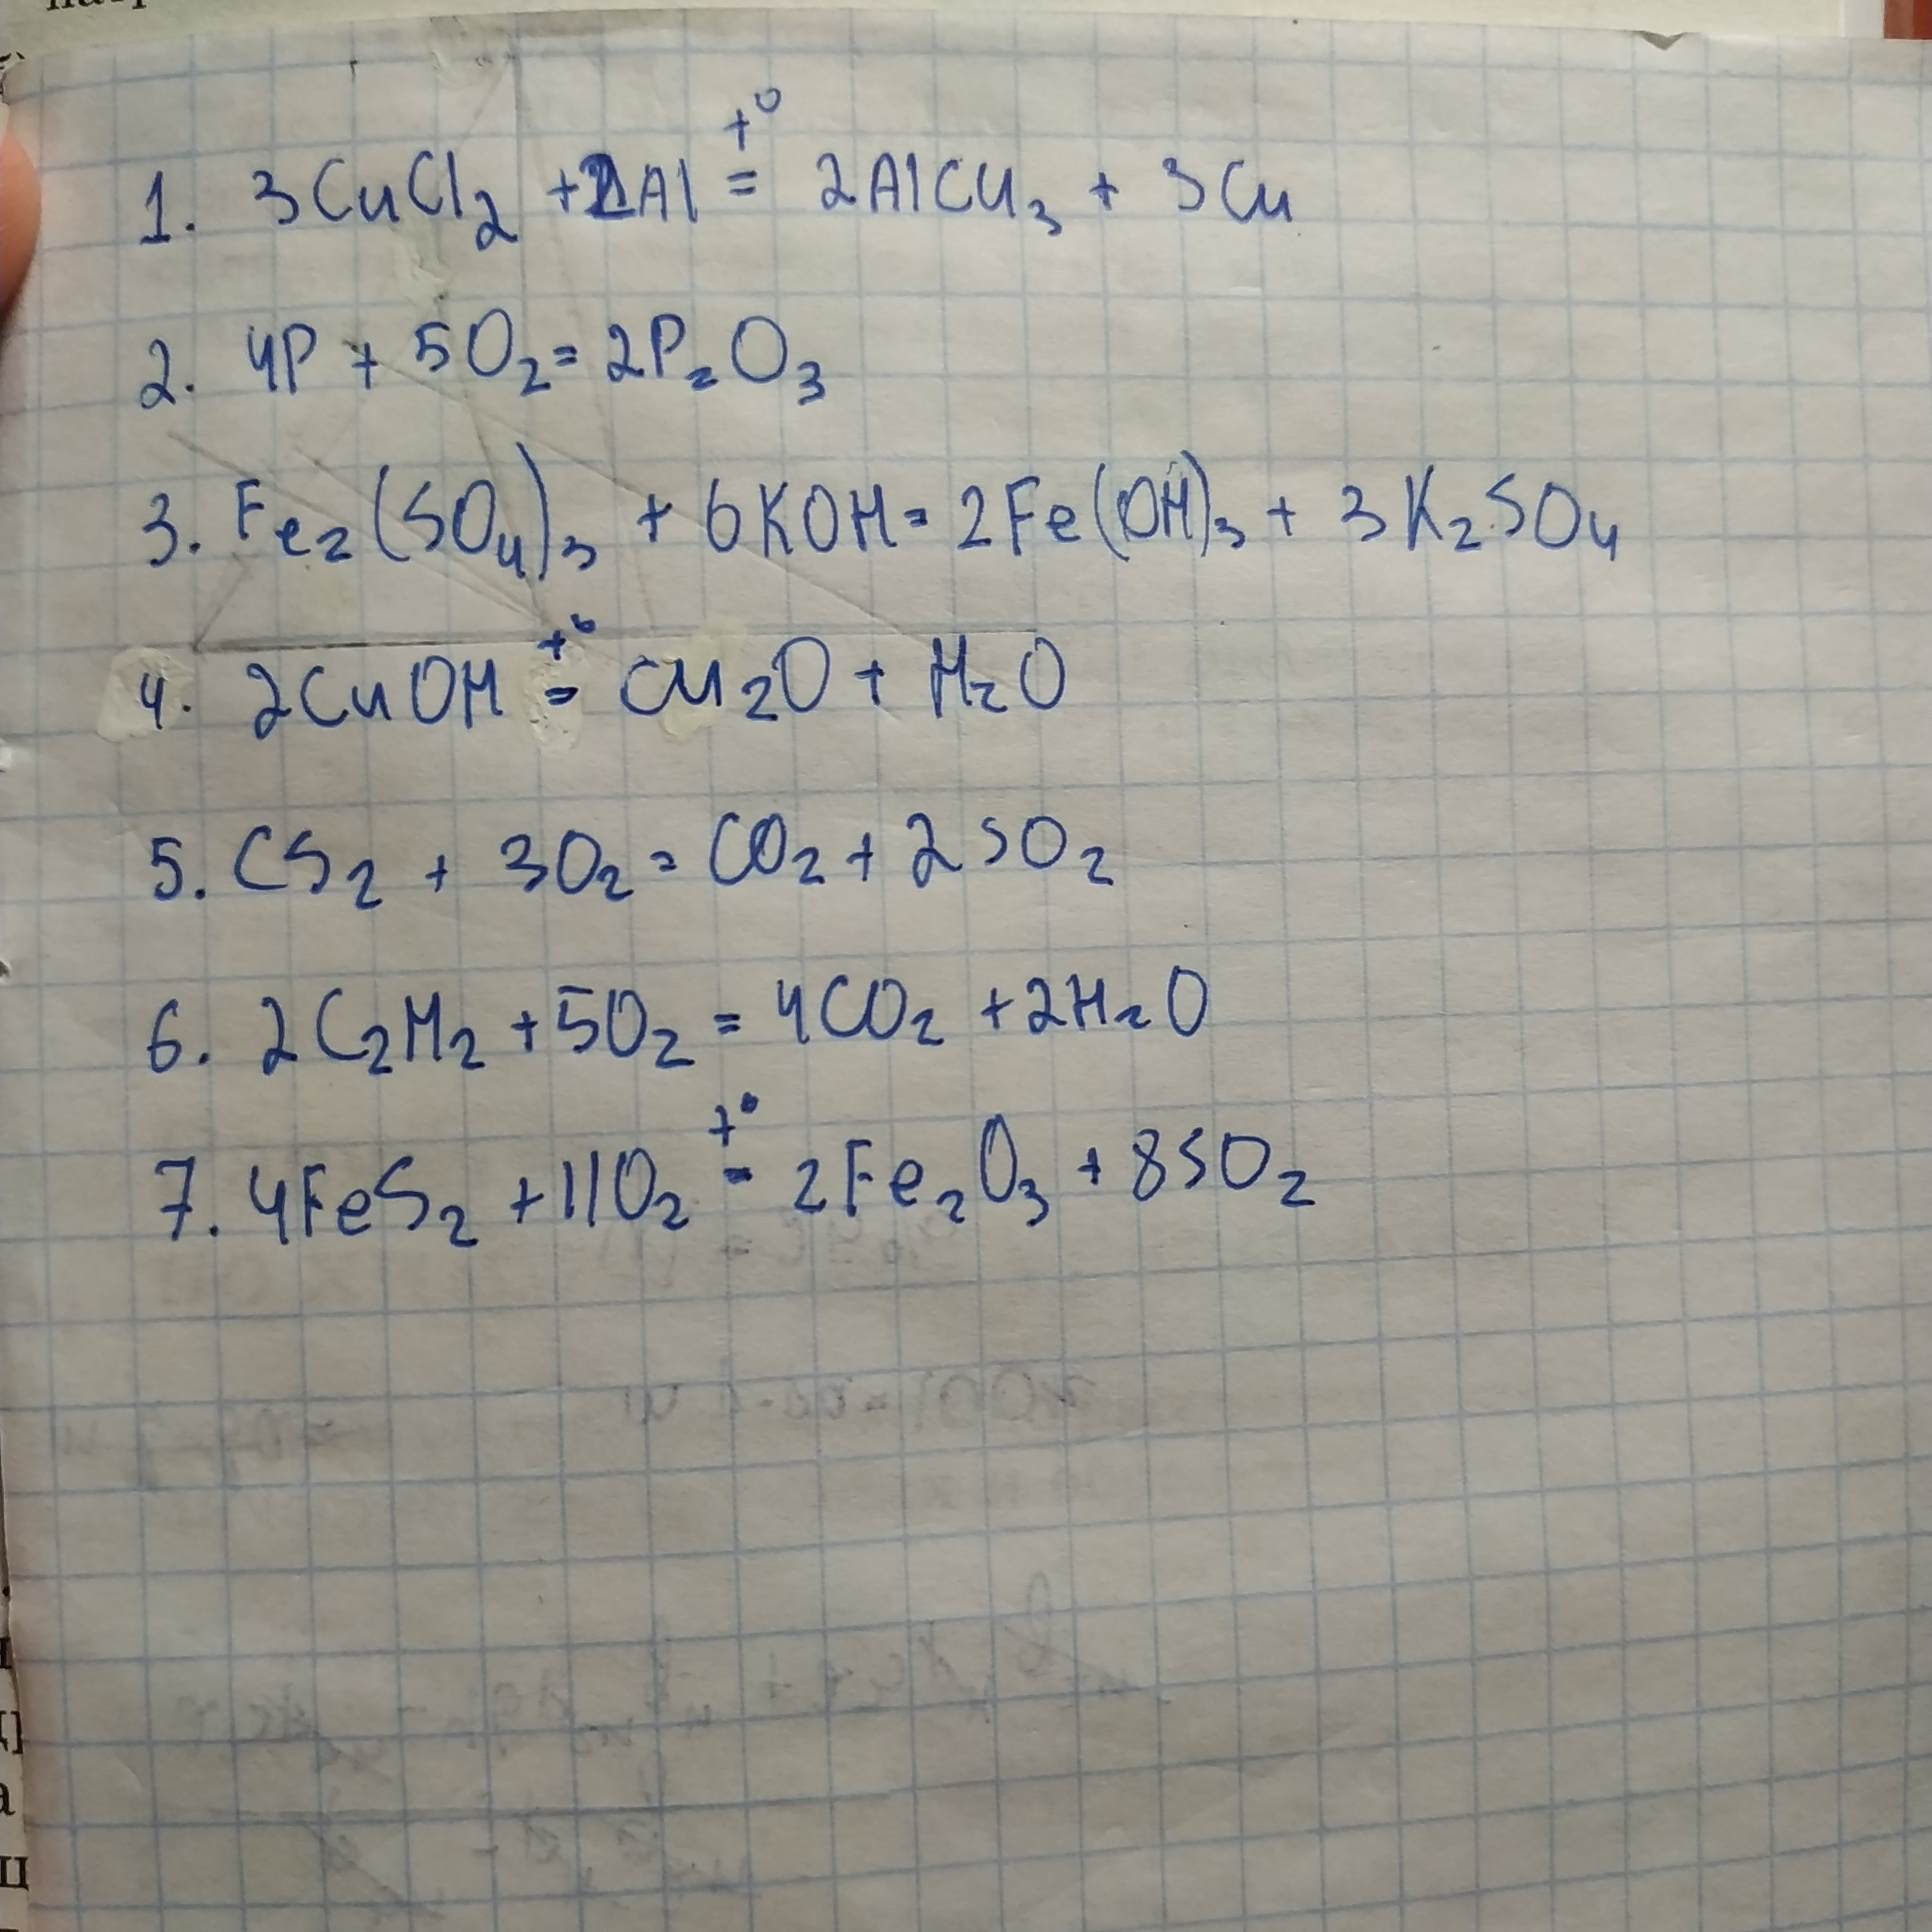 1. 3CuCl₂ + 2Al t⁰= 2AlCu₃ + 3Cu
2. 4P + 5O₂ = 2P₂O₃
3. Fe₂(SO₄)₃ + 6KOH = 2Fe(OH)₃ + 3K₂SO₄
4. 2CuOH t⁰= Cu₂O + H₂O
5. CS₂ + 3O₂ = CO₂ + 2SO₂
6. 2C₂H₂ + 5O₂ = 4CO₂ + 2H₂O
7. 4FeS₂ + 11O₂ t⁰= 2Fe₂O₃ + 8SO₂